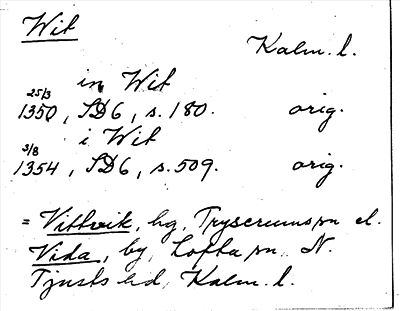 Wit
Kalm. l.
in Wit
25/3
1350, SD6, s. 180. orig.
i Wit
3/8
1354, SD6, s. 509. orig.
= Vittvik, hg, Tryserums sn el.
Vida, by, Lofta sn, N.
Tjusts hd, Kalm. l.